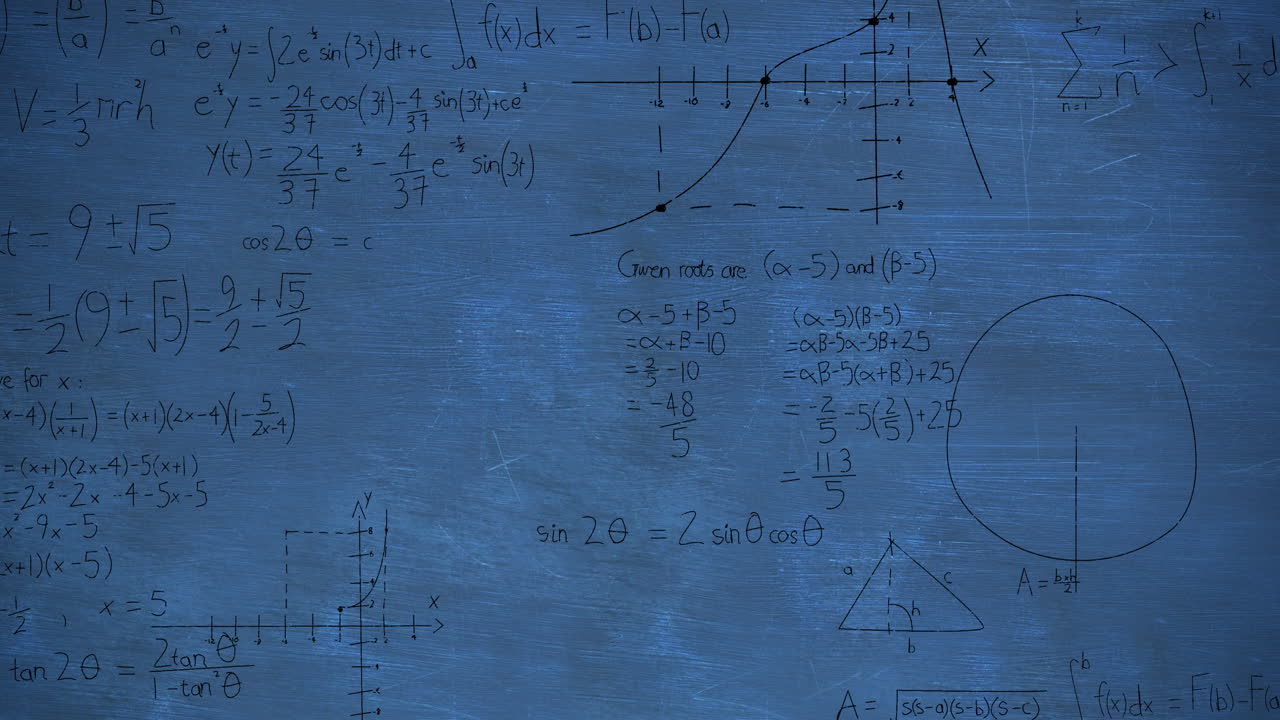 (b/a)ⁿ = bⁿ/aⁿ
e^-t y = ∫2e^t sin(3t)dt+c
∫ₐ f(x)dx = F(b)-F(a)
V = 1/3 πr²h
e^-t y = -24/37 cos(3t)-4/37 sin(3t)+ce^t
y(t) = 24/37 e^-t/2 - 4/37 e^-t/2 sin(3t)
x
4
2
-12 -10 -8 -6 -4 -2 2 4
-2
-4
-6
-8
k
Σ 1/n > ∫₁^k+1 1/x d
n=1
t = 9±√5
cos2θ = c
= 1/2 (9±√5) = 9/2 ± √5/2
Given roots are (α-5) and (β-5)
α-5+β-5
= α+β-10
= 2/5 -10
= -48/5
(α-5)(β-5)
=αβ-5α-5β+25
=αβ-5(α+β)+25
= -2/5 -5(2/5)+25
= 113/5
e for x :
x-4)(1/x+1) = (x+1)(2x-4)(1-5/2x-4)
= (x+1)(2x-4)-5(x+1)
= 2x²-2x-4-5x-5
x²-9x-5
x+1)(x-5)
-1/2 , x = 5
y
8
6
4
2
x
sin 2θ = 2 sinθ cosθ
a
c
h
b
A = bxh/2
tan 2θ = 2tanθ/1-tan²θ
A = √s(s-a)(s-b)(s-c)
∫^b f(x)dx = F(b)-F(a